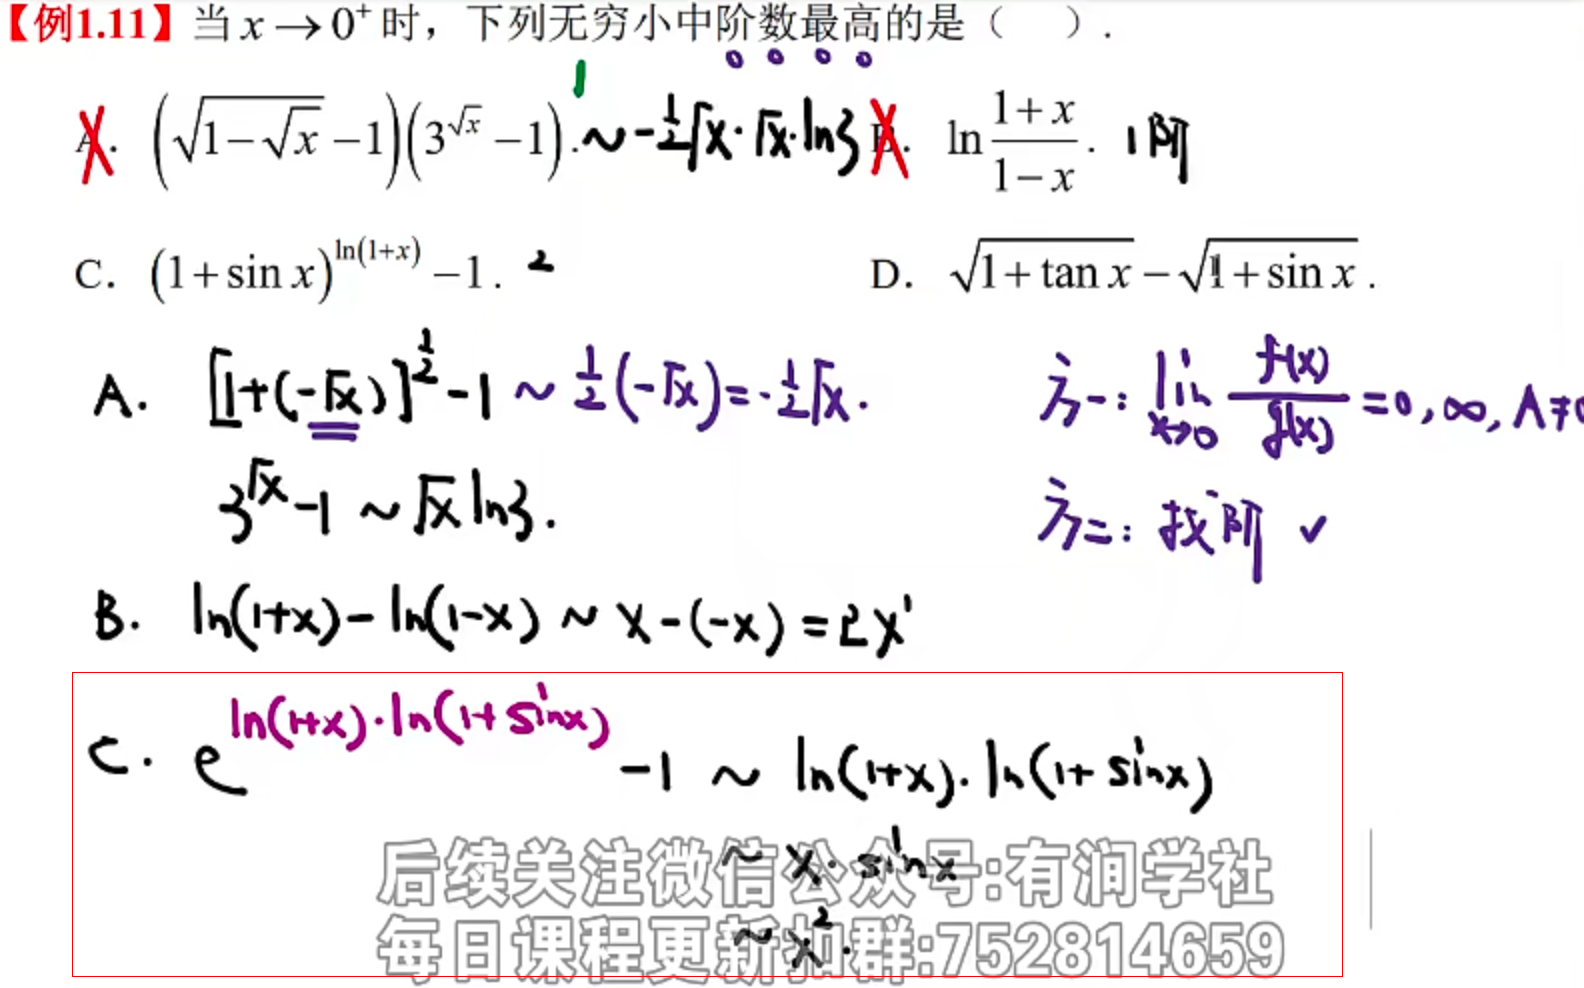 【例1.11】当 x → 0⁺ 时，下列无穷小中阶数最高的是（ ）.
A. (√(1−√x) −1)(3^√x −1). ~ −½√x·√x·ln3 1
B. ln (1+x)/(1−x). 1阶
C. (1+sin x)^ln(1+x) −1. 2
D. √(1+tan x) − √(1+sin x).
A. [1+(−√x)]^½ −1 ~ ½(−√x)=−½√x.
3^√x −1 ~ √x ln3.
方一: lim x→0 f(x)/g(x) =0, ∞, A≠0
方二: 找阶 ✓
B. ln(1+x)−ln(1−x) ~ x−(−x) = 2x¹
C. e^ln(1+x)·ln(1+sinx) −1 ~ ln(1+x)·ln(1+sinx)
~ x·sinx
~ x².
后续关注微信公众号:有润学社
每日课程更新扣群:752814659